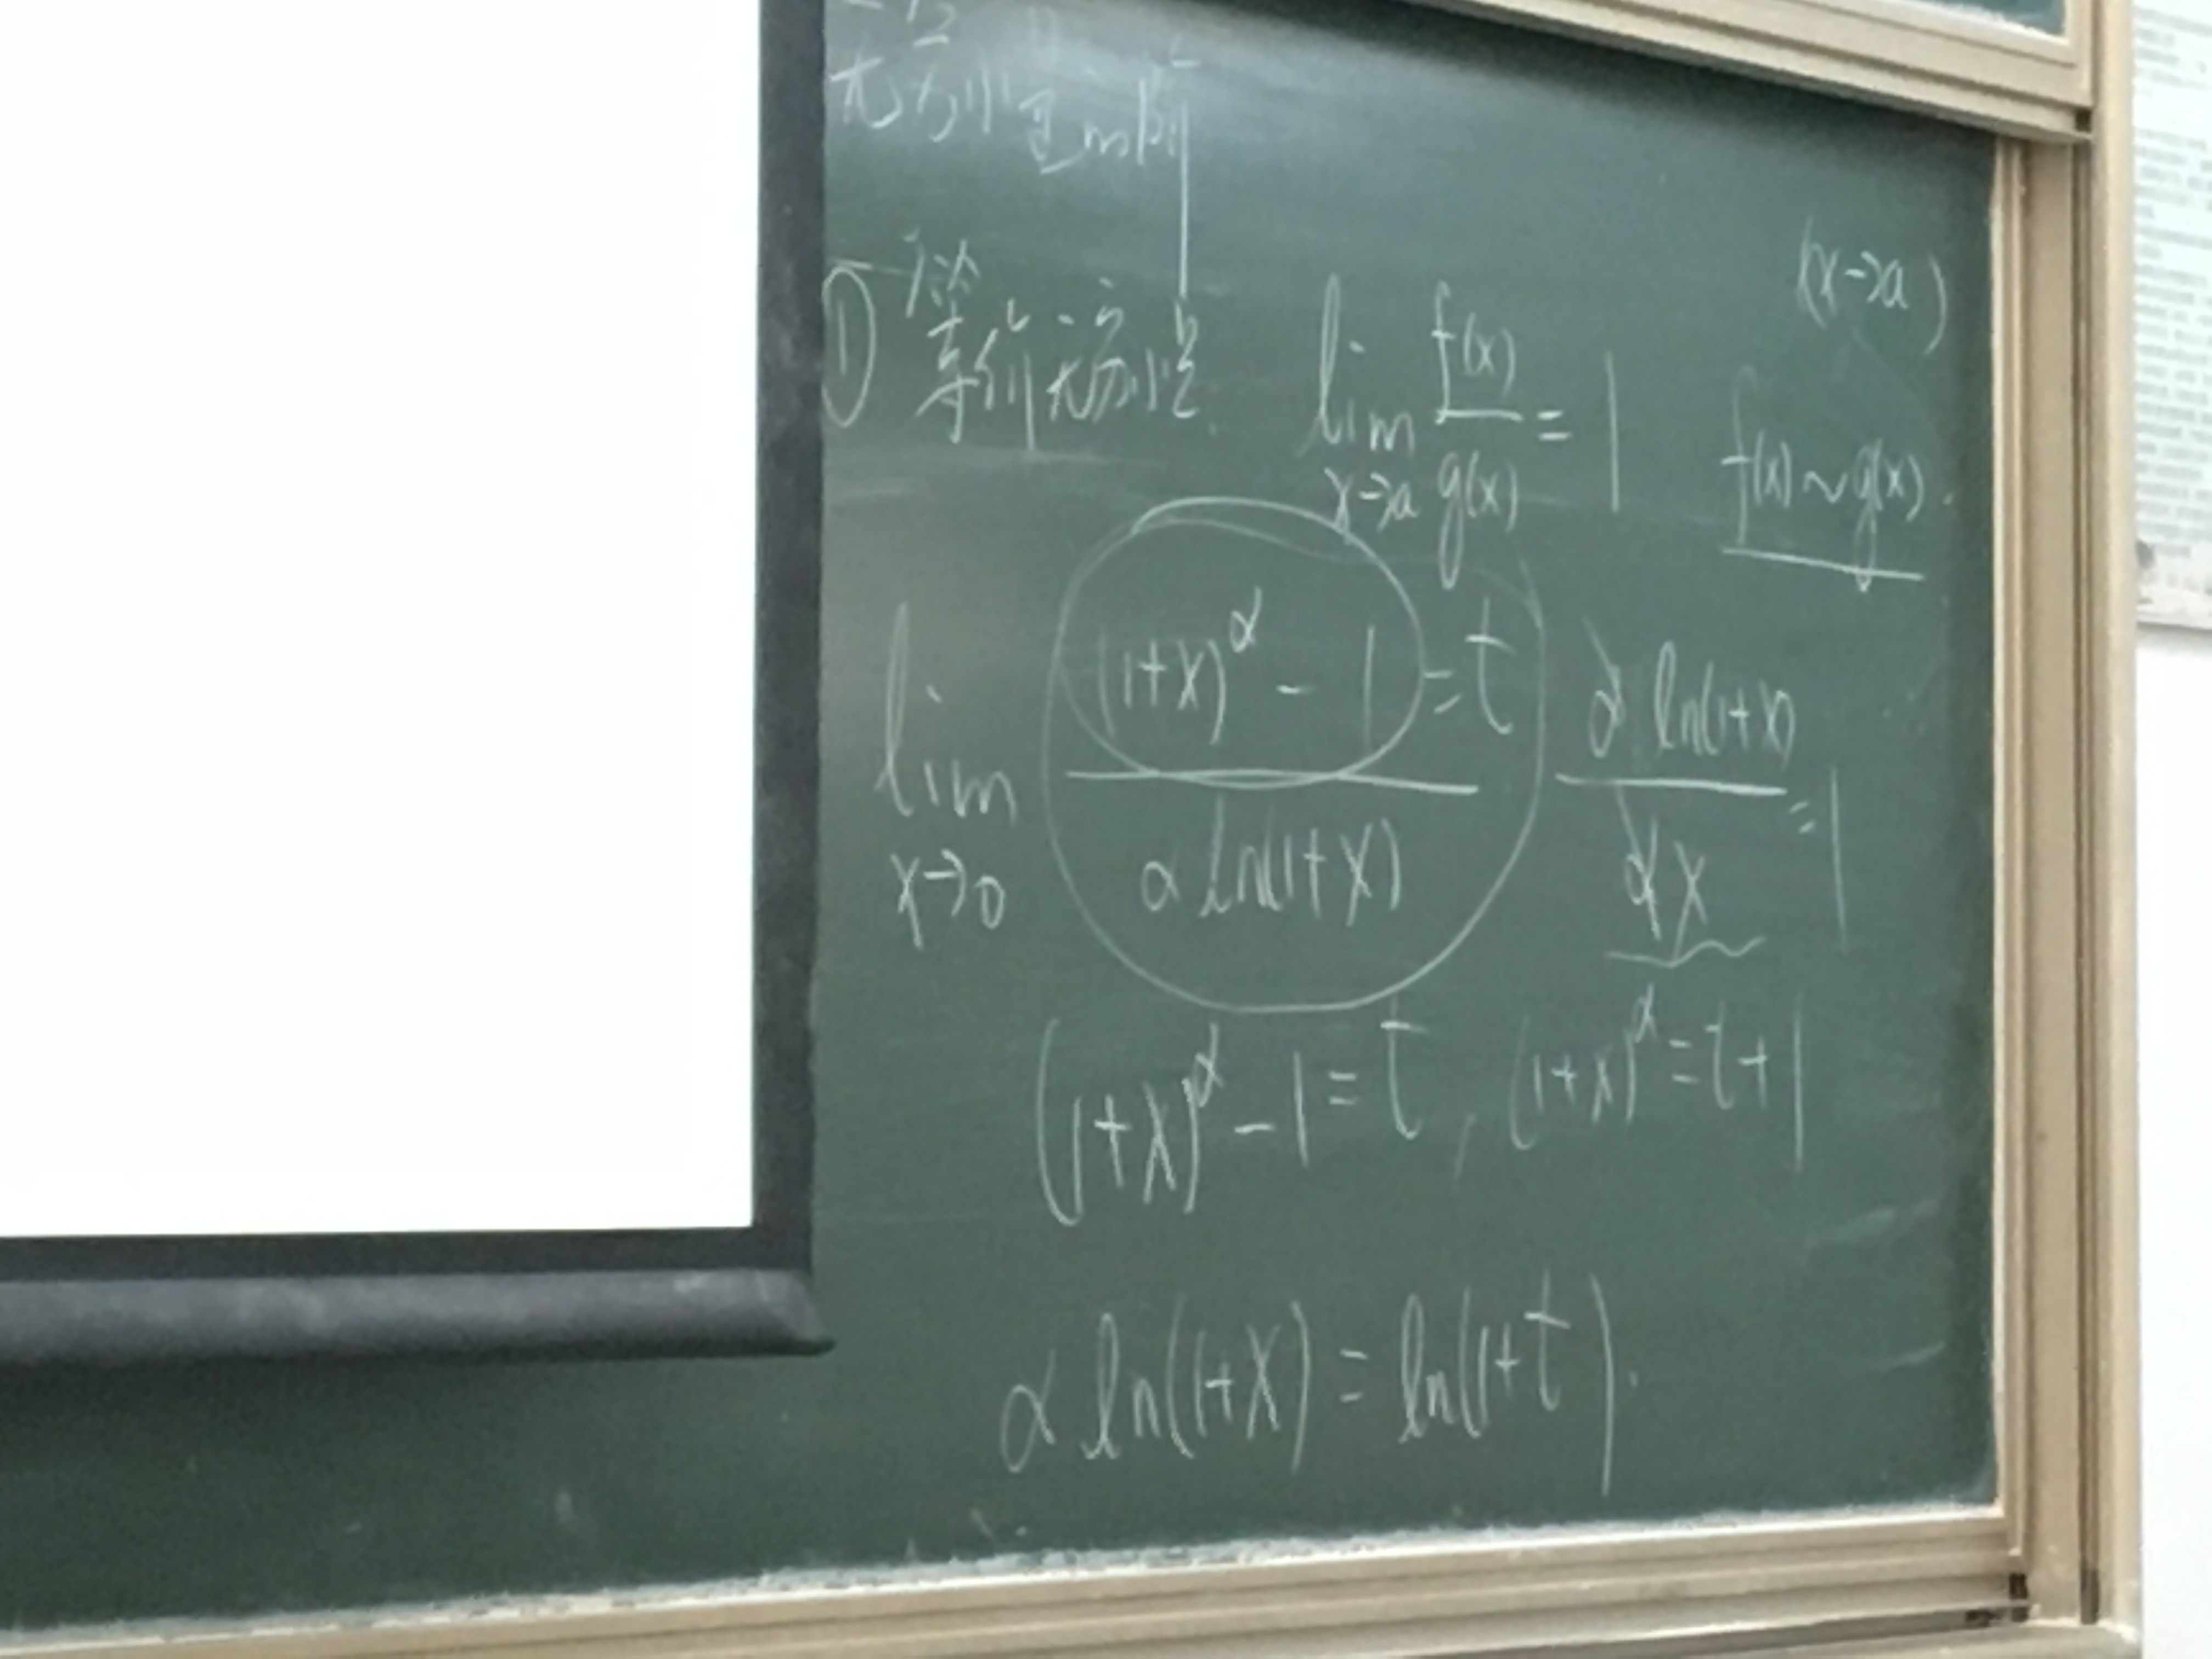 无穷小量的阶
① 等价无穷小量. lim_{x→a} f(x)/g(x) = 1 (x→a) f(x)~g(x).
lim_{x→0} ((1+x)^α - 1 = t)/(α ln(1+x)) · (α ln(1+x))/(αx) = 1
(1+x)^α - 1 = t, (1+x)^α = t+1
α ln(1+x) = ln(1+t).